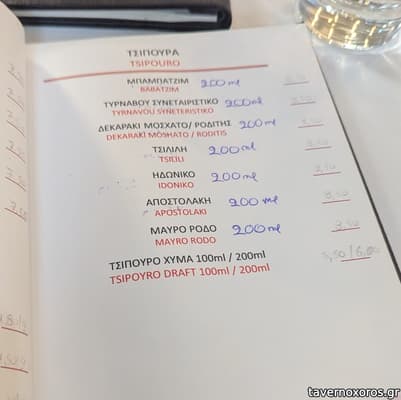 ΤΣΙΠΟΥΡΑ
TSIPOURO
ΜΠΑΜΠΑΤΖΙΜ 200ml
BABATZIM
ΤΥΡΝΑΒΟΥ ΣΥΝΕΤΑΙΡΙΣΤΙΚΟ 200ml
TYRNAVOU SYNETERISTIKO
ΔΕΚΑΡΑΚΙ ΜΟΣΧΑΤΟ/ ΡΟΔΙΤΗΣ 200 ml
DEKARAKI MOSHATO/ RODITIS
ΤΣΙΛΙΛΗ 200ml
TSILILI
ΗΔΟΝΙΚΟ 200ml
IDONIKO
ΑΠΟΣΤΟΛΑΚΗ 200 ml
APOSTOLAKI
ΜΑΥΡΟ ΡΟΔΟ 200ml
MAYRO RODO
ΤΣΙΠΟΥΡΟ ΧΥΜΑ 100ml / 200ml
TSIPOYRO DRAFT 100ml / 200ml
tavernoxoros.gr